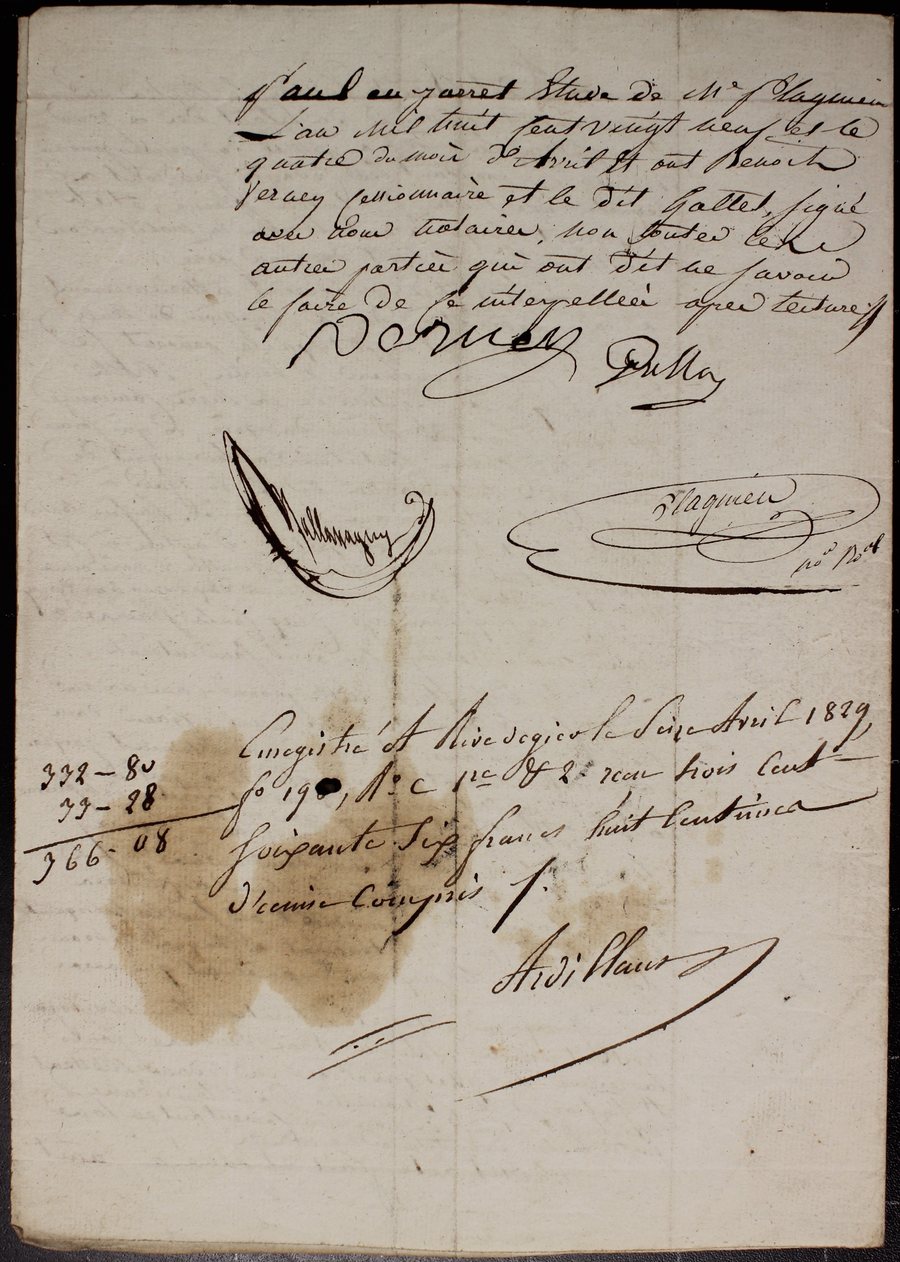 Paul en jarret Etude de Me Plagnieu
L'an mil huit cent vingt neuf et le
quatre du mois d'avril Et ont Benoit
Verney cessionnaire et le dit Gattet, signé
avec nous notaires, non toutes les
autres parties qui ont dit ne savoir
le faire de ce interpellées après lecture
Verney
Plagnieu
no.e R.al
Enregistré A Rivedegier le Seize Avril 1829,
fo 190, Ro c 1re & 2 reçu trois Cent
332 - 80
33 - 28
366 - 08
soixante Six francs huit Centimes
Décime Compris
Ardillaux